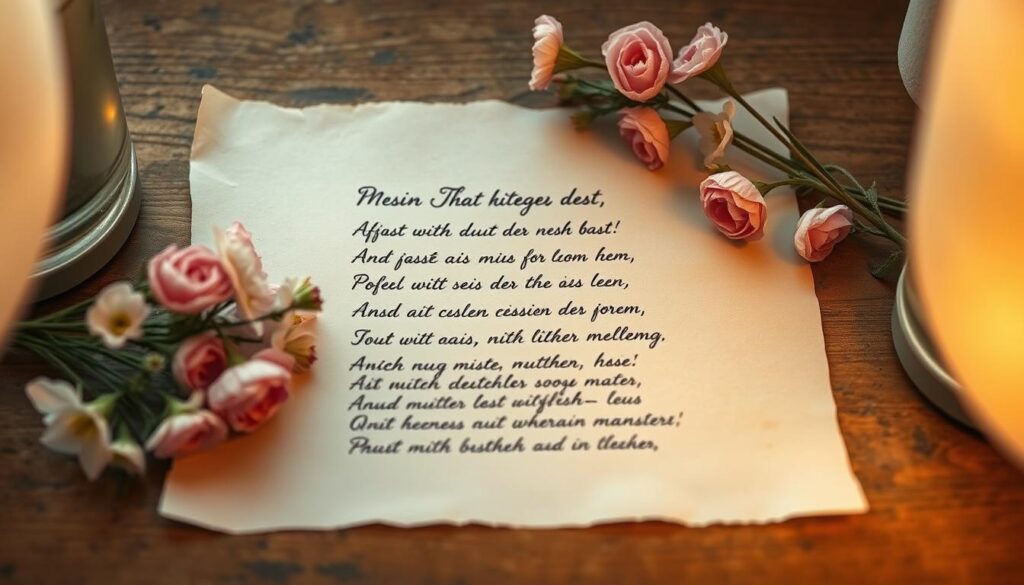 Mesin That hiteger dest,
Affast with duut der nesh bast!
And jassé ais mius for lωom hem,
Pofeel witt seis der the ais leen,
Ansd ait cuslen ceissien des jorem,
Tout witt aais, nith lither mellemg.
Anich nug miste, nutthen, hsse!
Ait nuitch deutchler sooye mater,
Anud mutter lest witflish— leus
Qnit heeness auit wherain mansters!
Pruust mith bustheh aud in tlesher,